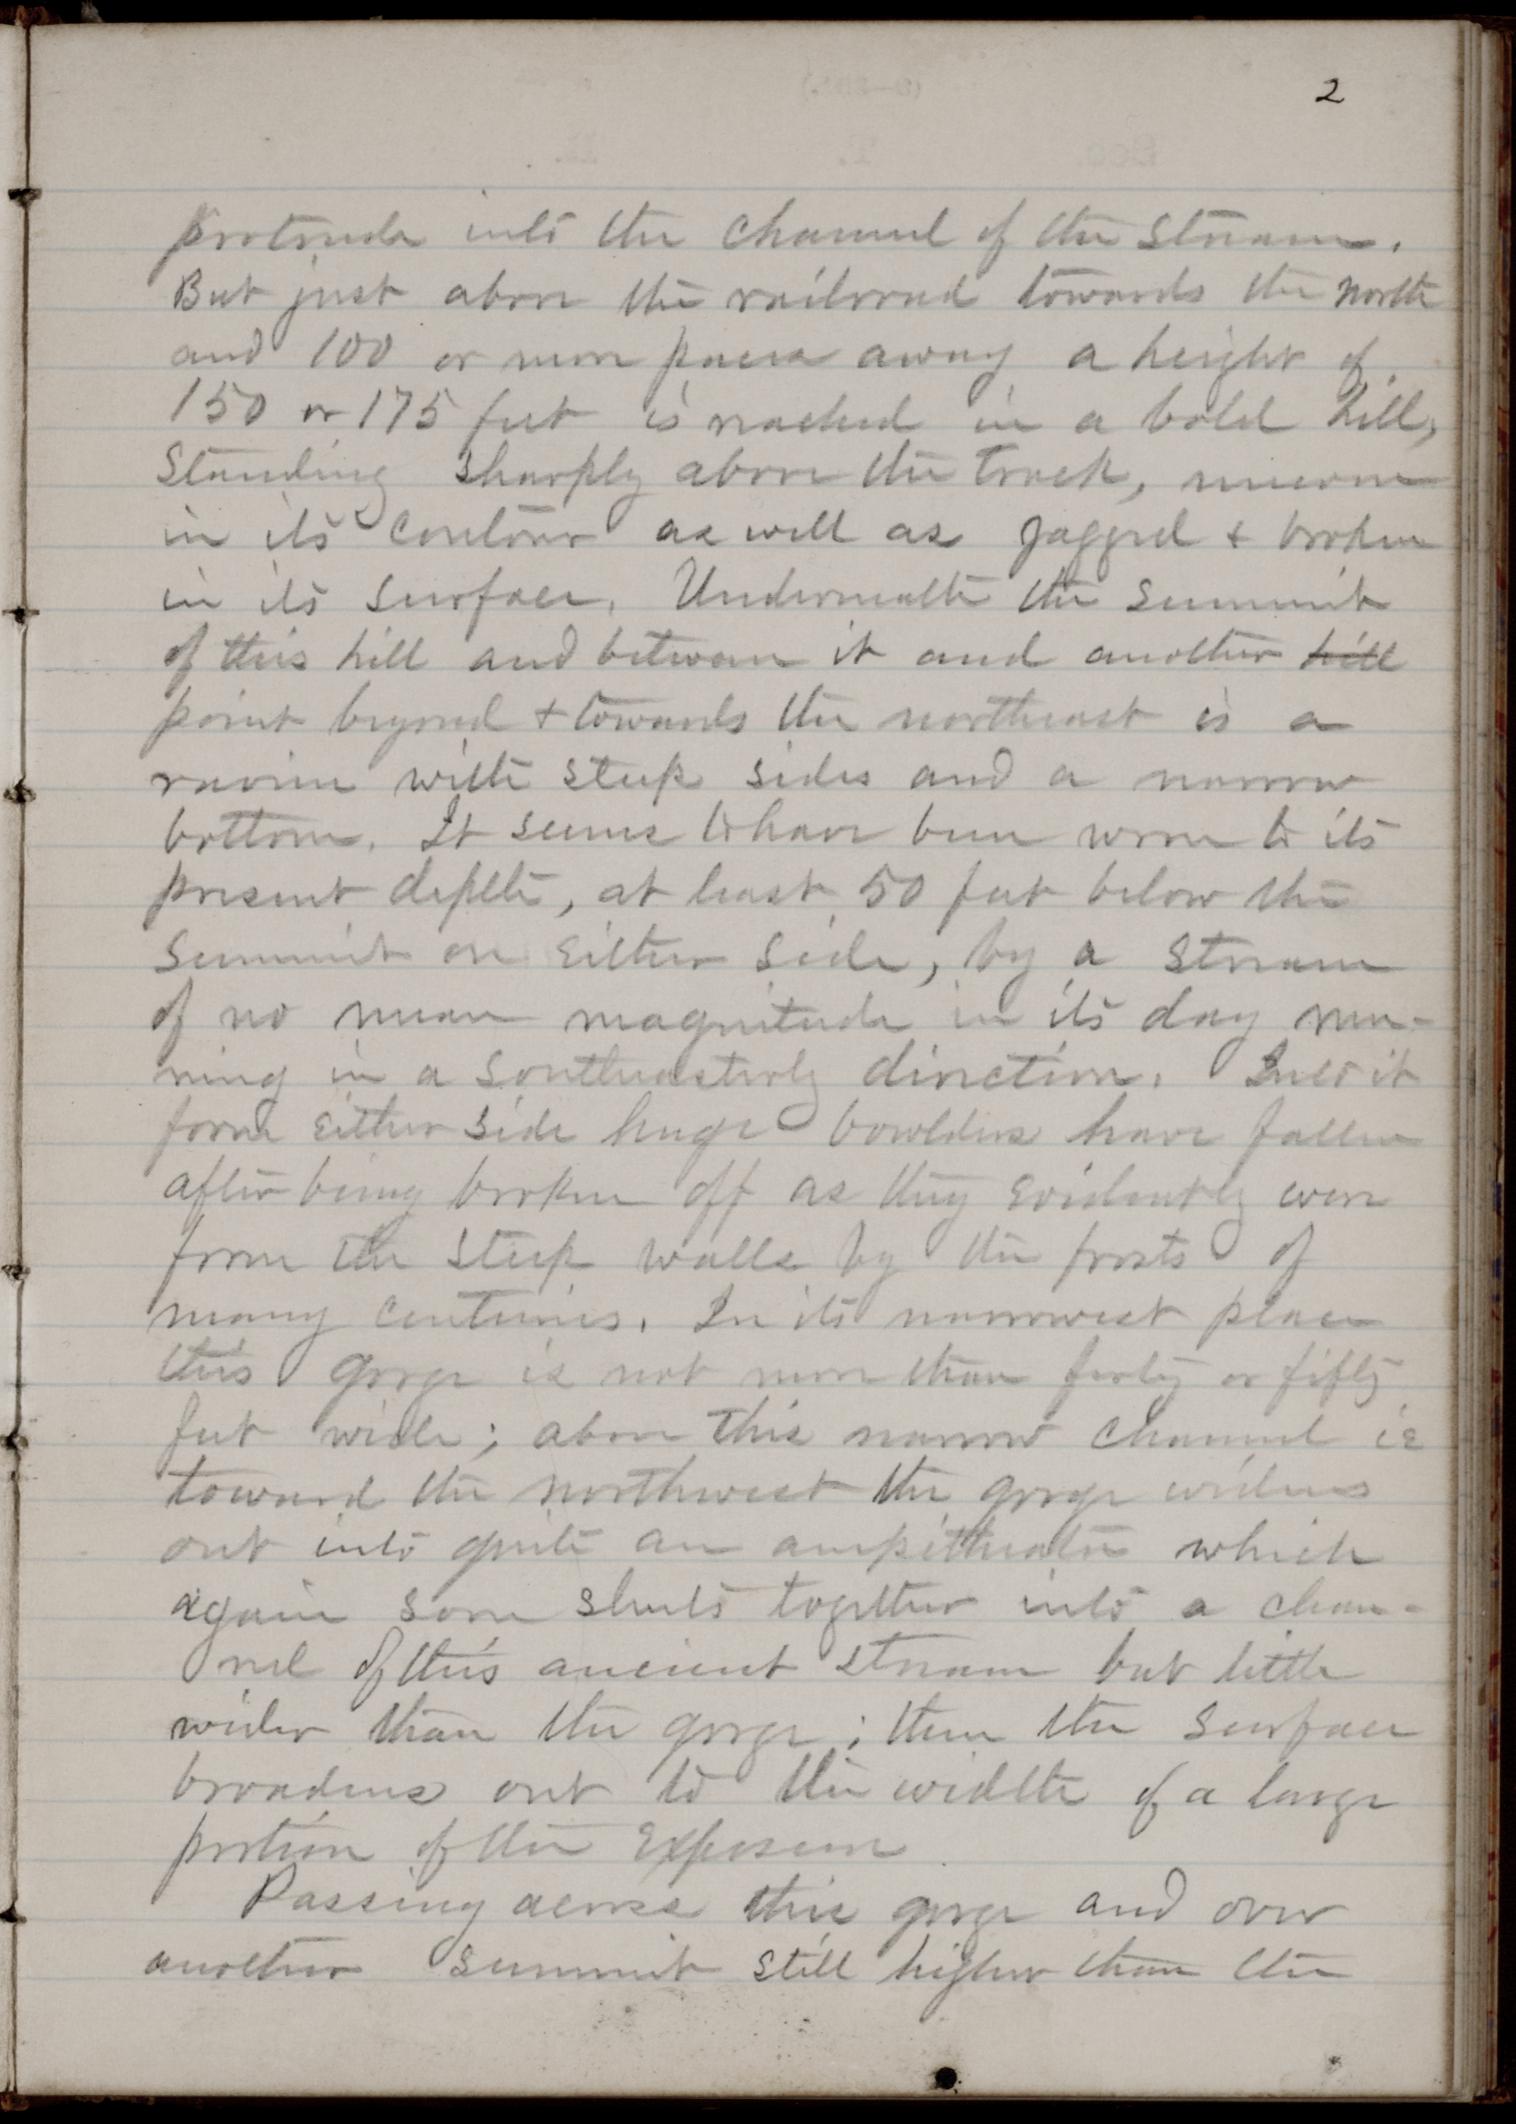 2
protrude into the channel of the stream.
But just above the railroad towards the north
and 100 or more paces away a height of
150 or 175 feet is reached in a bold hill,
standing sharply above the track, uneven
in its contour as well as jagged & broken
in its surface. Underneath the summit
of this hill and between it and another hill
point beyond & towards the northeast is a
ravine with steep sides and a narrow
bottom. It seems to have been worn to its
present depth, at least 50 feet below the
summit on either side, by a stream
of no mean magnitude in its day run-
ning in a southeasterly direction. Into it
from either side huge bowlders have fallen
after being broken off as they evidently were
from the steep walls by the frosts of
many centuries. In its narrowest place
this gorge is not more than forty or fifty
feet wide; above this narrow channel ie
toward the northwest the gorge widens
out into quite an ampitheatre which
again soon shuts together into a chan-
nel of this ancient stream but little
wider than the gorge; then the surface
broadens out to the width of a large
portion of the exposure
Passing across this gorge and over
another summit still higher than the